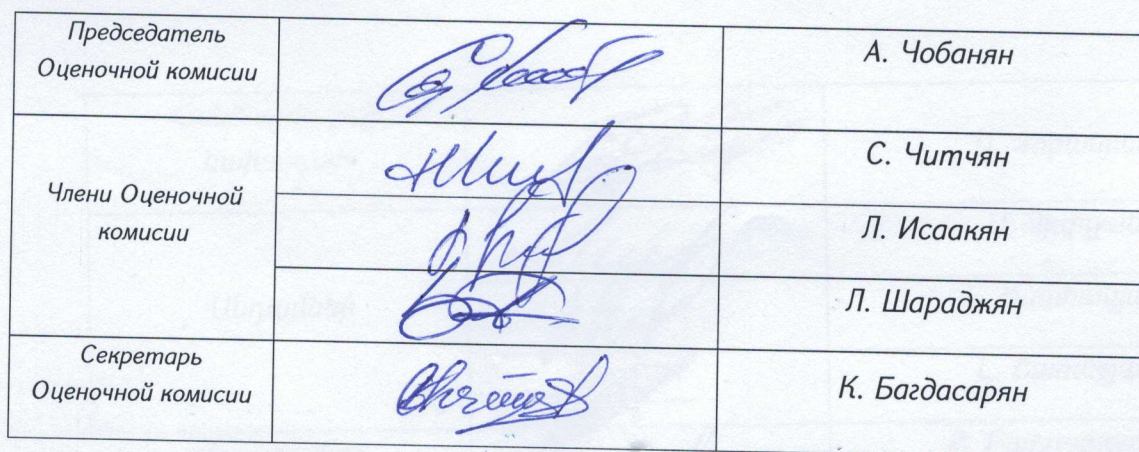 Председатель
Оценочной комисии
А. Чобанян
Члени Оценочной
комисии
С. Читчян
Л. Исаакян
Л. Шараджян
Секретарь
Оценочной комисии
К. Багдасарян